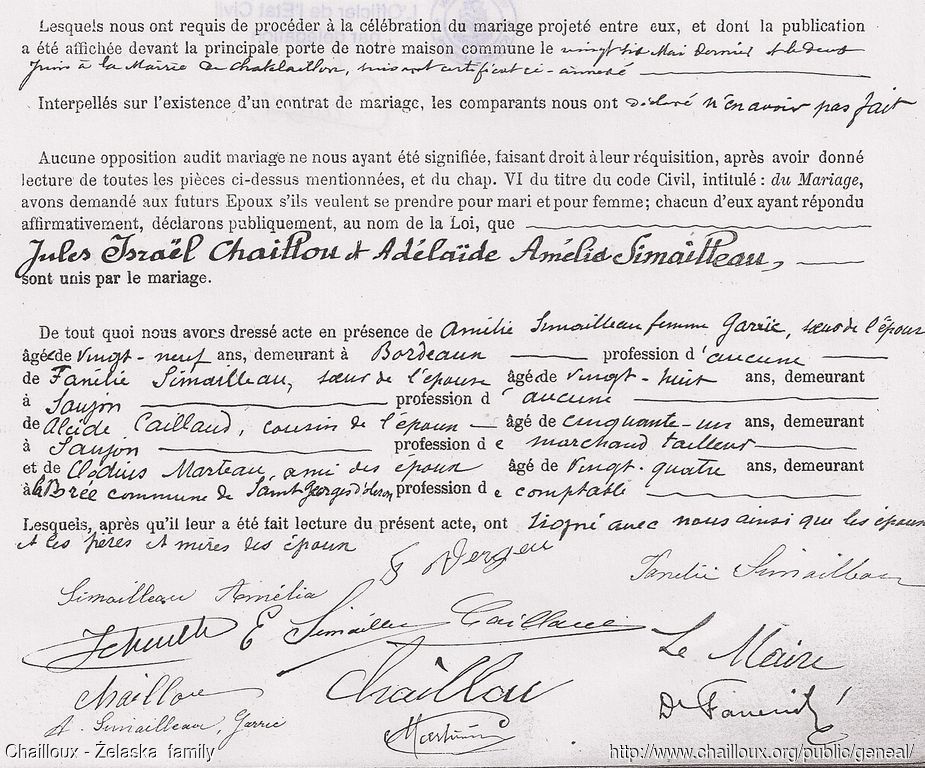 Lesquels nous ont requis de procéder à la célébration du mariage projeté entre eux, et dont la publication
a été affichée devant la principale porte de notre maison commune le vingt six Mai Dernier et le deux
Juin à la Mairie de Chatelaillon, suivant certificat ci-annexé
Interpellés sur l'existence d'un contrat de mariage, les comparants nous ont déclaré n'en avoir pas fait
Aucune opposition audit mariage ne nous ayant été signifiée, faisant droit à leur réquisition, après avoir donné
lecture de toutes les pièces ci-dessus mentionnées, et du chap. VI du titre du code Civil, intitulé : du Mariage,
avons demandé aux futurs Epoux s'ils veulent se prendre pour mari et pour femme; chacun d'eux ayant répondu
affirmativement, déclarons publiquement, au nom de la Loi, que
Jules Israël Chaillou et Adélaïde Amélia Simailleau,
sont unis par le mariage.
De tout quoi nous avons dressé acte en présence de Amélie Simailleau femme Garric, sœur de l'épouse
âgée de vingt-neuf ans, demeurant à Bordeaux profession d'aucune
de Fanélie Simailleau, sœur de l'épouse âgée de vingt-huit ans, demeurant
à Saujon profession d'aucune
de Alcide Caillaud, cousin de l'époux âgé de cinquante-un ans, demeurant
à Saujon profession de marchand tailleur
et de Clodius Marteau, ami des époux âgé de vingt-quatre ans, demeurant
à la Brée commune de Saint Georges d'Oléron profession de comptable
Lesquels, après qu'il leur a été fait lecture du présent acte, ont signé avec nous ainsi que les époux
et les pères et mères des époux
Simailleau Amélia
Fanélie Simailleau
E Simailleau Caillaud
Le Maire
Chaillou
Chaillou
A. Simailleau, Garric
Dr
Chailloux - Żelaska family
http://www.chailloux.org/public/geneal/